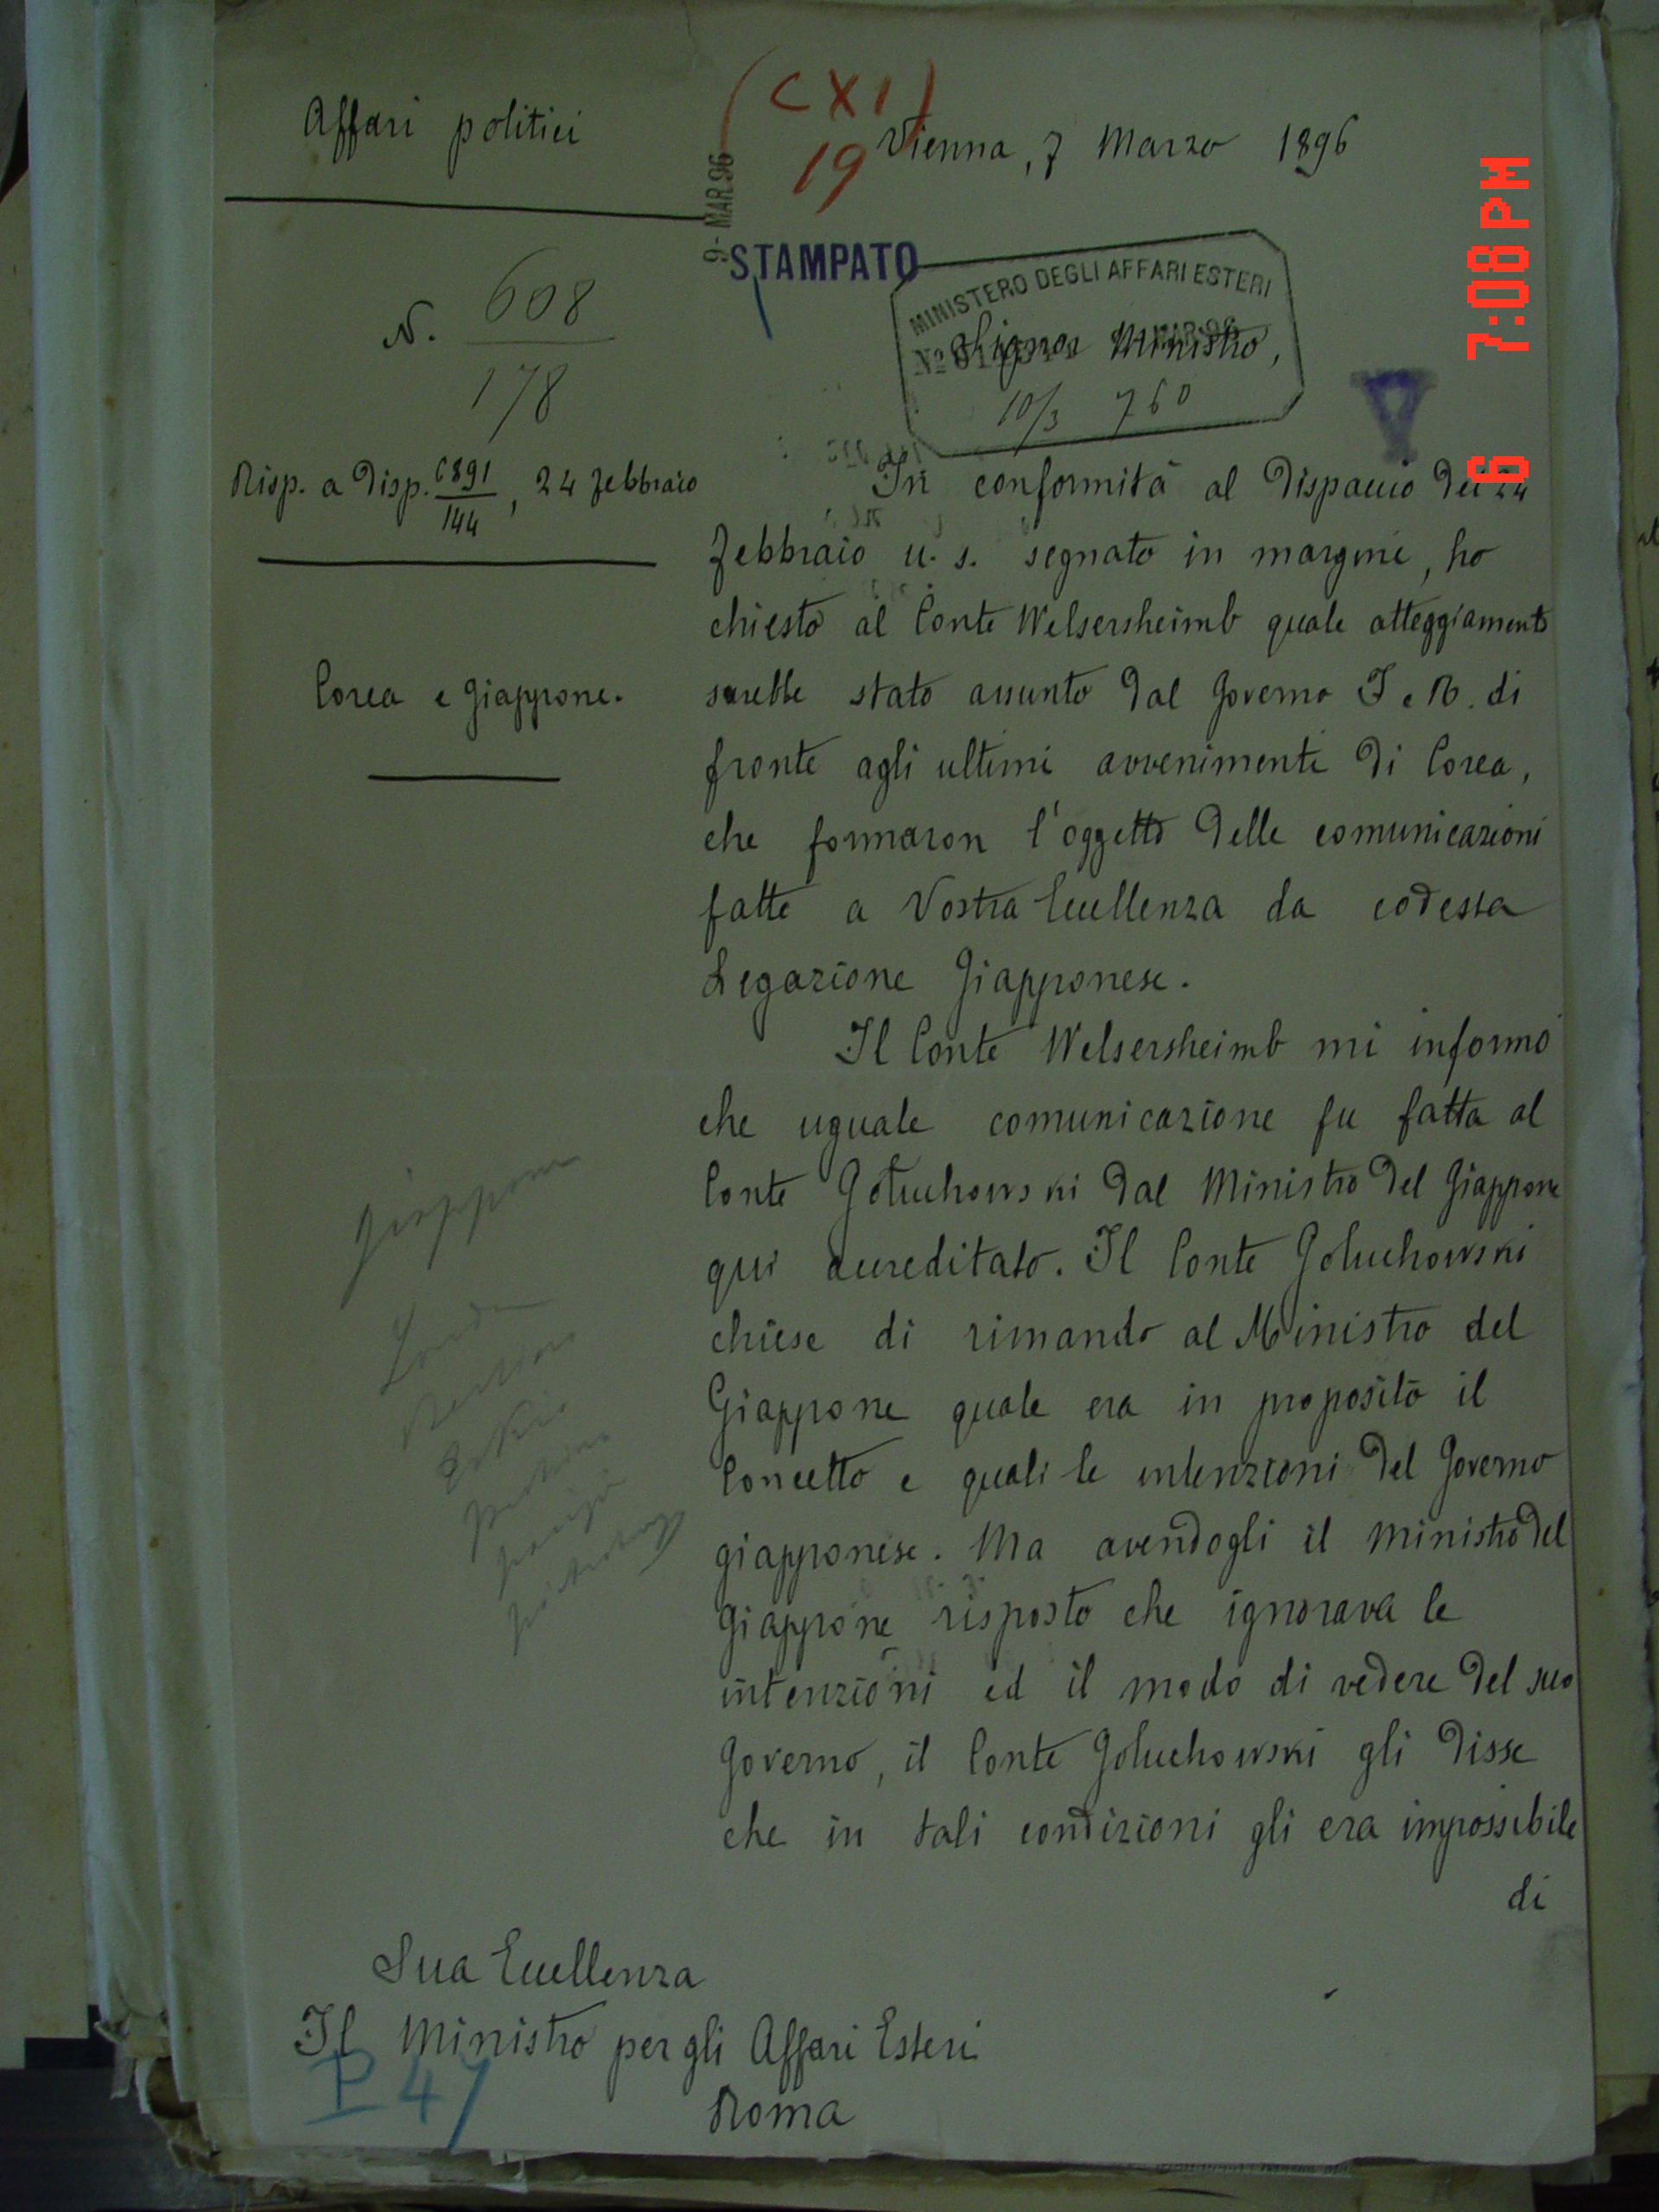 Affari politici
(CXI)
19
Vienna, 7 Marzo 1896
9-MAR.96
STAMPATO
N. 608
178
MINISTERO DEGLI AFFARI ESTERI
Signor Ministro,
10/3 760
Risp. a Disp. 6891/144, 24 Febbraio
Corea e Giappone.
In conformità al Dispaccio del 24
Febbraio u. s. segnato in margine, ho
chiesto al Conte Welsersheimb quale atteggiamento
sarebbe stato assunto dal Governo I e R. di
fronte agli ultimi avvenimenti di Corea,
che formaron l'oggetto delle comunicazioni
fatte a Vostra Eccellenza da codesta
Legazione Giapponese.
Il Conte Welsersheimb mi informò
che uguale comunicazione fu fatta al
Conte Goluchowski dal Ministro del Giappone
qui accreditato. Il Conte Goluchowski
chiese di rimando al Ministro del
Giappone quale era in proposito il
Concetto e quali le intenzioni del Governo
giapponese. Ma avendogli il Ministro del
Giappone risposto che ignorava le
intenzioni ed il modo di vedere del suo
Governo, il Conte Goluchowski gli disse
che in tali condizioni gli era impossibile
di
Giappone
Londra
Berlino
Parigi
Pietroburgo
Sua Eccellenza
Il Ministro per gli Affari Esteri
Roma
P 47
7:08 PM
6